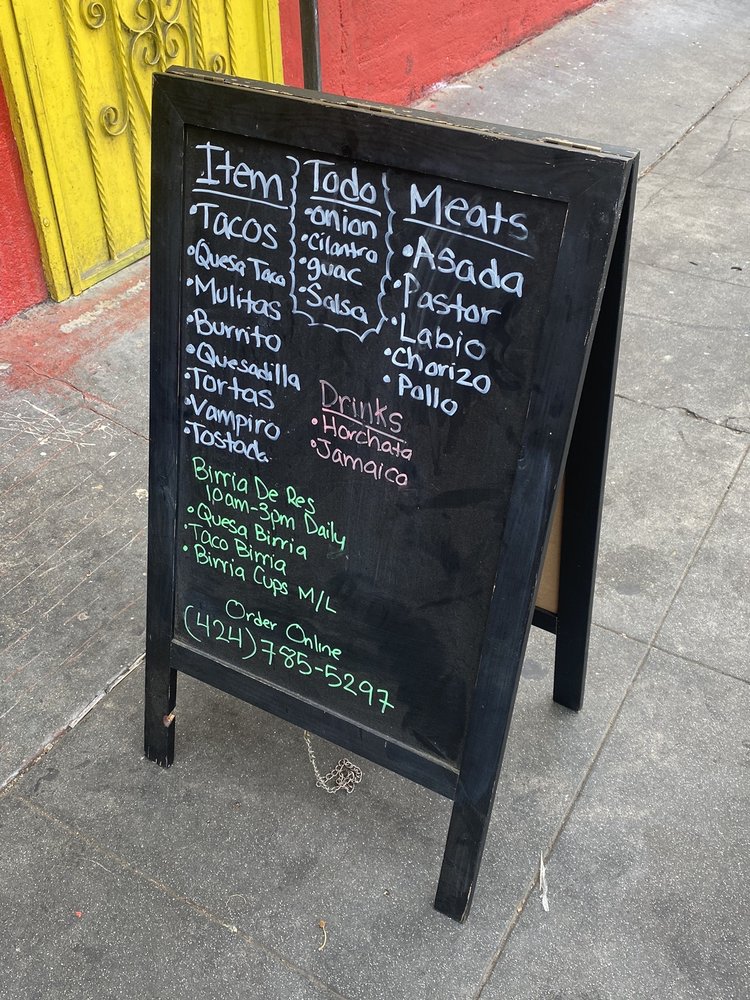 Item
• Tacos
• Quesa Taco
• Mulitas
• Burrito
• Quesadilla
• Tortas
• Vampiro
• Tostada
Todo
• onion
• cilantro
• guac
• Salsa
Meats
• Asada
• Pastor
• Labio
• Chorizo
• Pollo
Drinks
• Horchata
• Jamaica
Birria De Res
10am-3pm Daily
• Quesa Birria
• Taco Birria
• Birria Cups M/L
Order Online
(424)785-5297